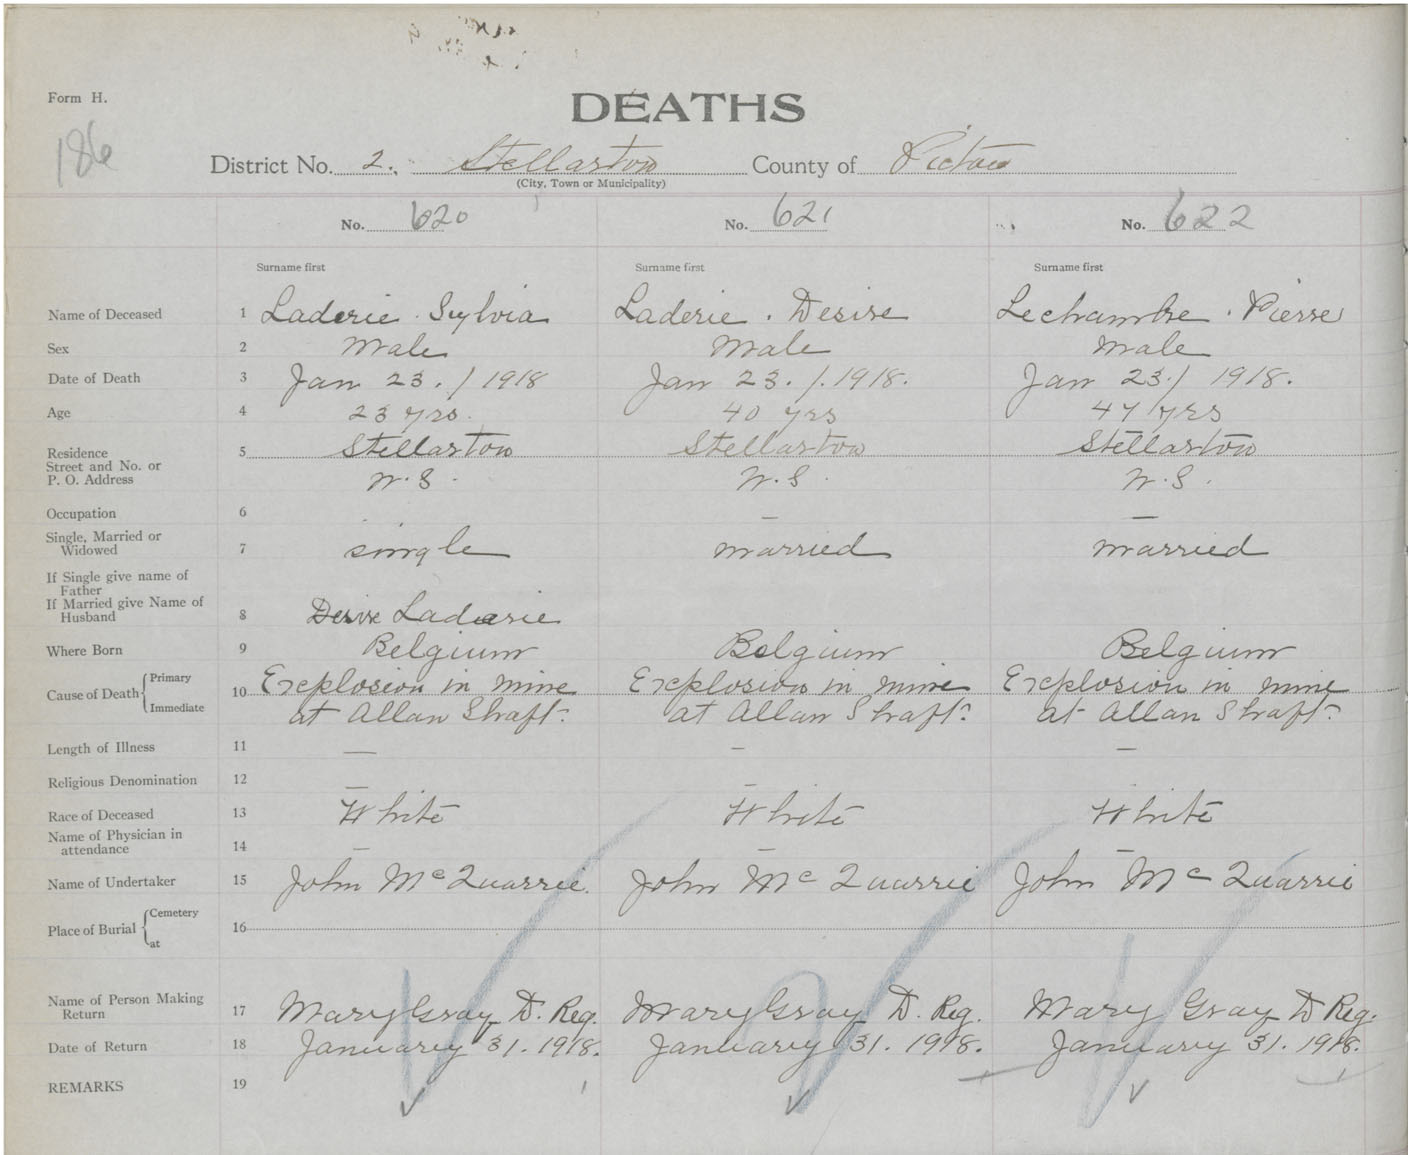 Form H.
DEATHS
186
District No. 2., Stellarton County of Pictou
(City, Town or Municipality)
No. 620 No. 621 No. 622
Surname first Surname first Surname first
Name of Deceased 1 Laderie. Sylvia Laderie. Desire Lechambre. Pierre
Sex 2 Male Male Male
Date of Death 3 Jan 23. / 1918 Jan 23. /. 1918. Jan 23 / 1918.
Age 4 23 yrs. 40 yrs 47 yrs
Residence 5 Stellarton Stellarton Stellarton
Street and No. or
P. O. Address N. S. N. S. N. S.
Occupation 6 — —
Single, Married or
Widowed 7 single married married
If Single give name of
Father
If Married give Name of
Husband 8 Desire Laderie
Where Born 9 Belgium Belgium Belgium
Cause of Death Primary 10 Explosion in mine Explosion in mine Explosion in mine
Immediate at Allan Shaft. at Allan Shaft. at Allan Shaft.
Length of Illness 11 — — —
Religious Denomination 12 — — —
Race of Deceased 13 White White White
Name of Physician in
attendance 14 — — —
Name of Undertaker 15 John McQuarrie. John McQuarrie John McQuarrie
Place of Burial Cemetery 16
at
Name of Person Making
Return 17 Mary Gray D. Reg. Mary Gray D. Reg. Mary Gray D Reg.
Date of Return 18 January 31. 1918. January 31. 1918. January 31. 1918.
REMARKS 19